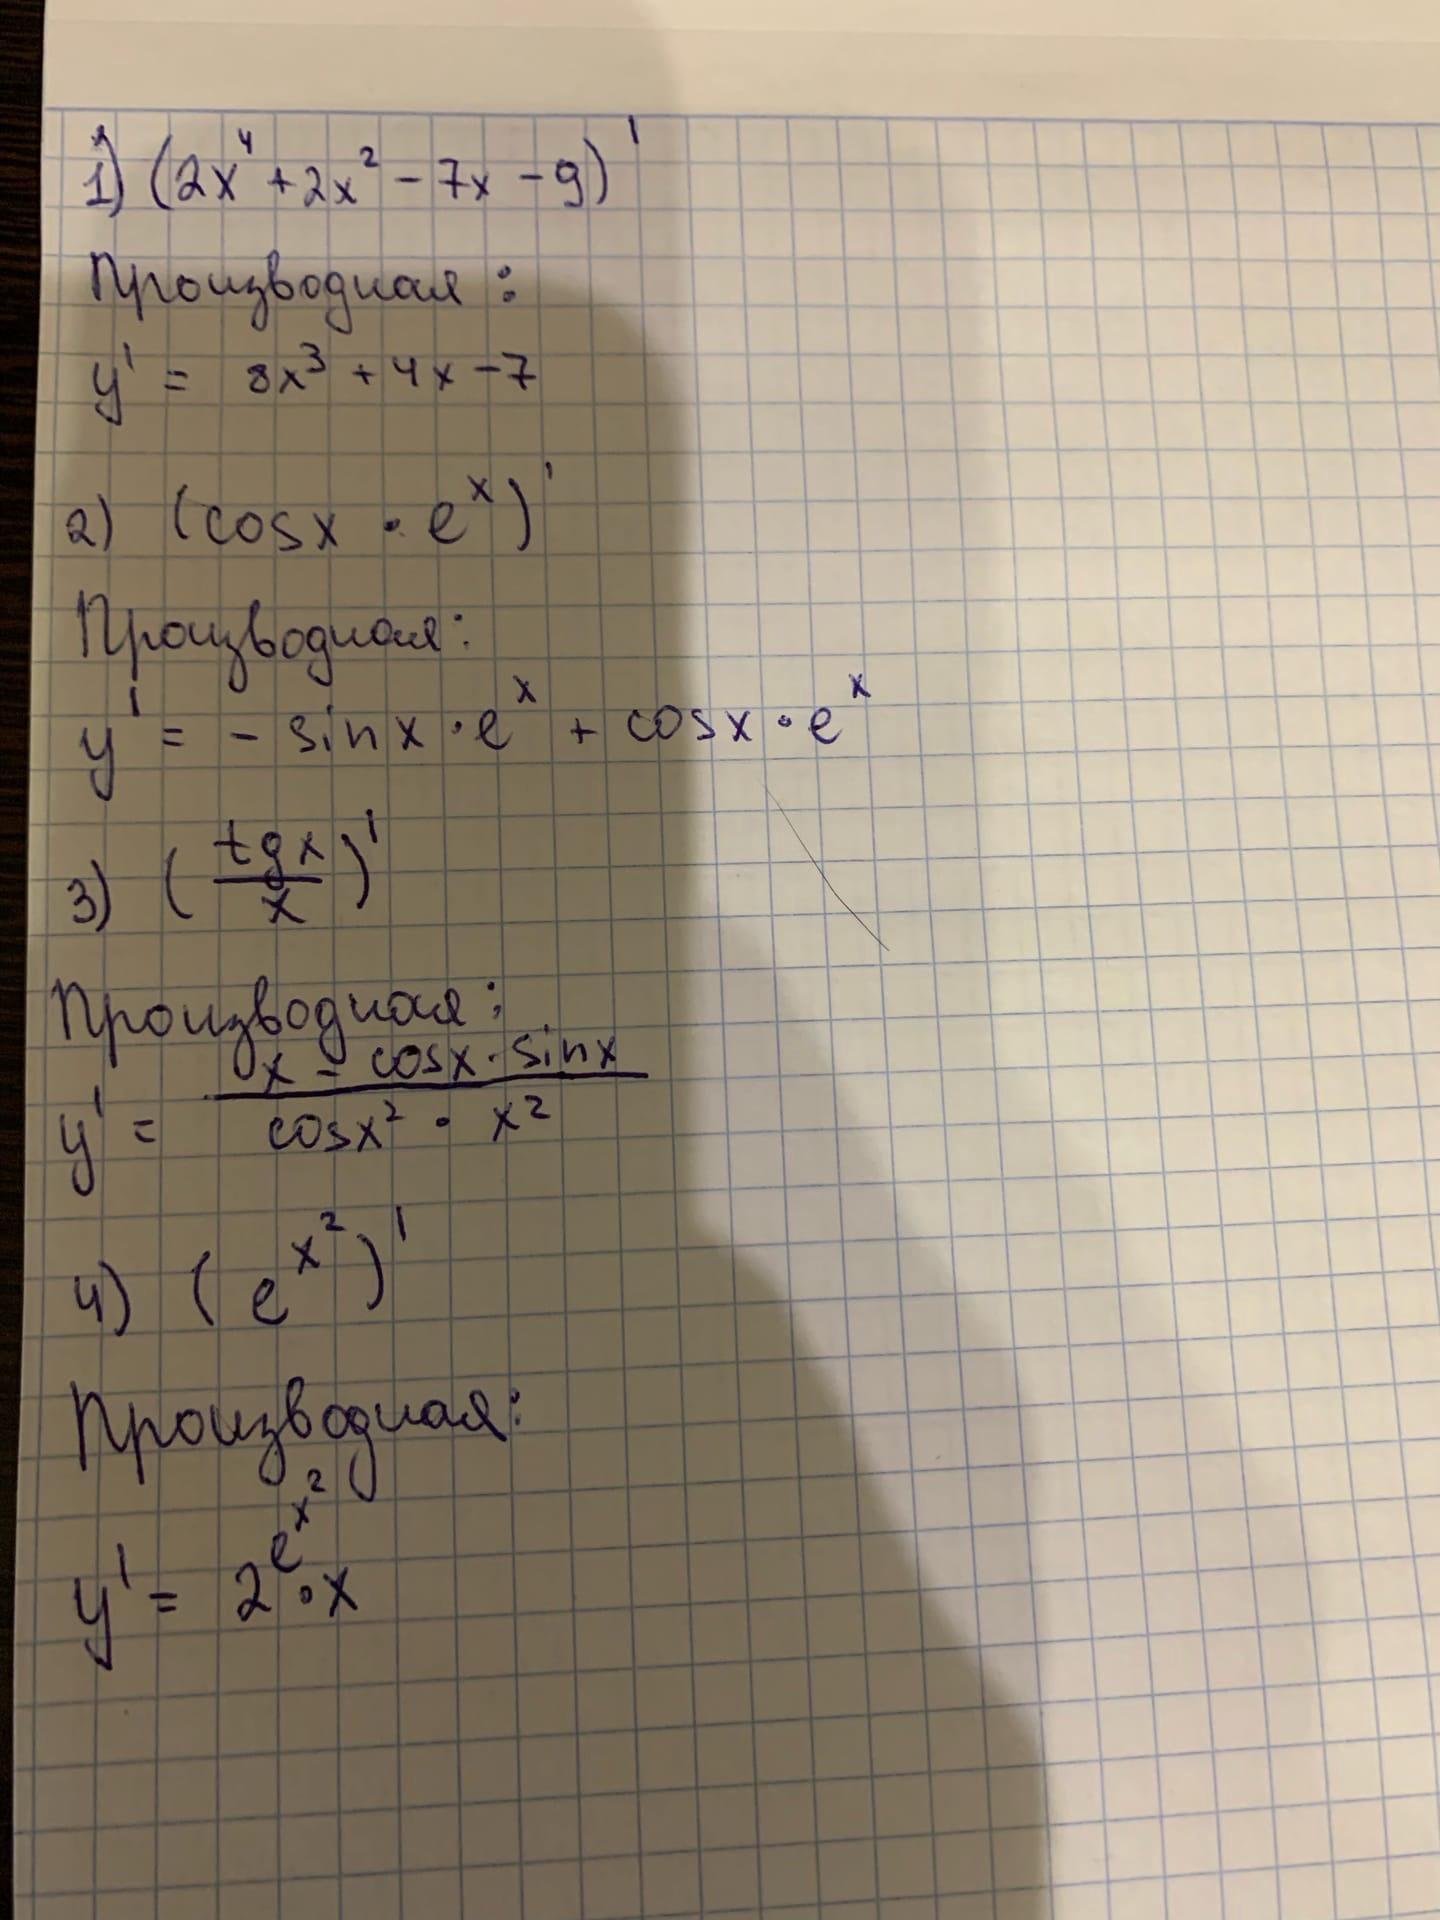 1) (2x⁴ + 2x² - 7x - 9)'
Производная:
y' = 8x³ + 4x - 7
2) (cosx · eˣ)'
Производная:
y' = - sinx · eˣ + cosx · eˣ
3) (tgx / x)'
Производная:
y' = (x - cosx · sinx) / (cosx² · x²)
4) (e^(x²))'
Производная:
y' = 2^(e^(x²)) · x